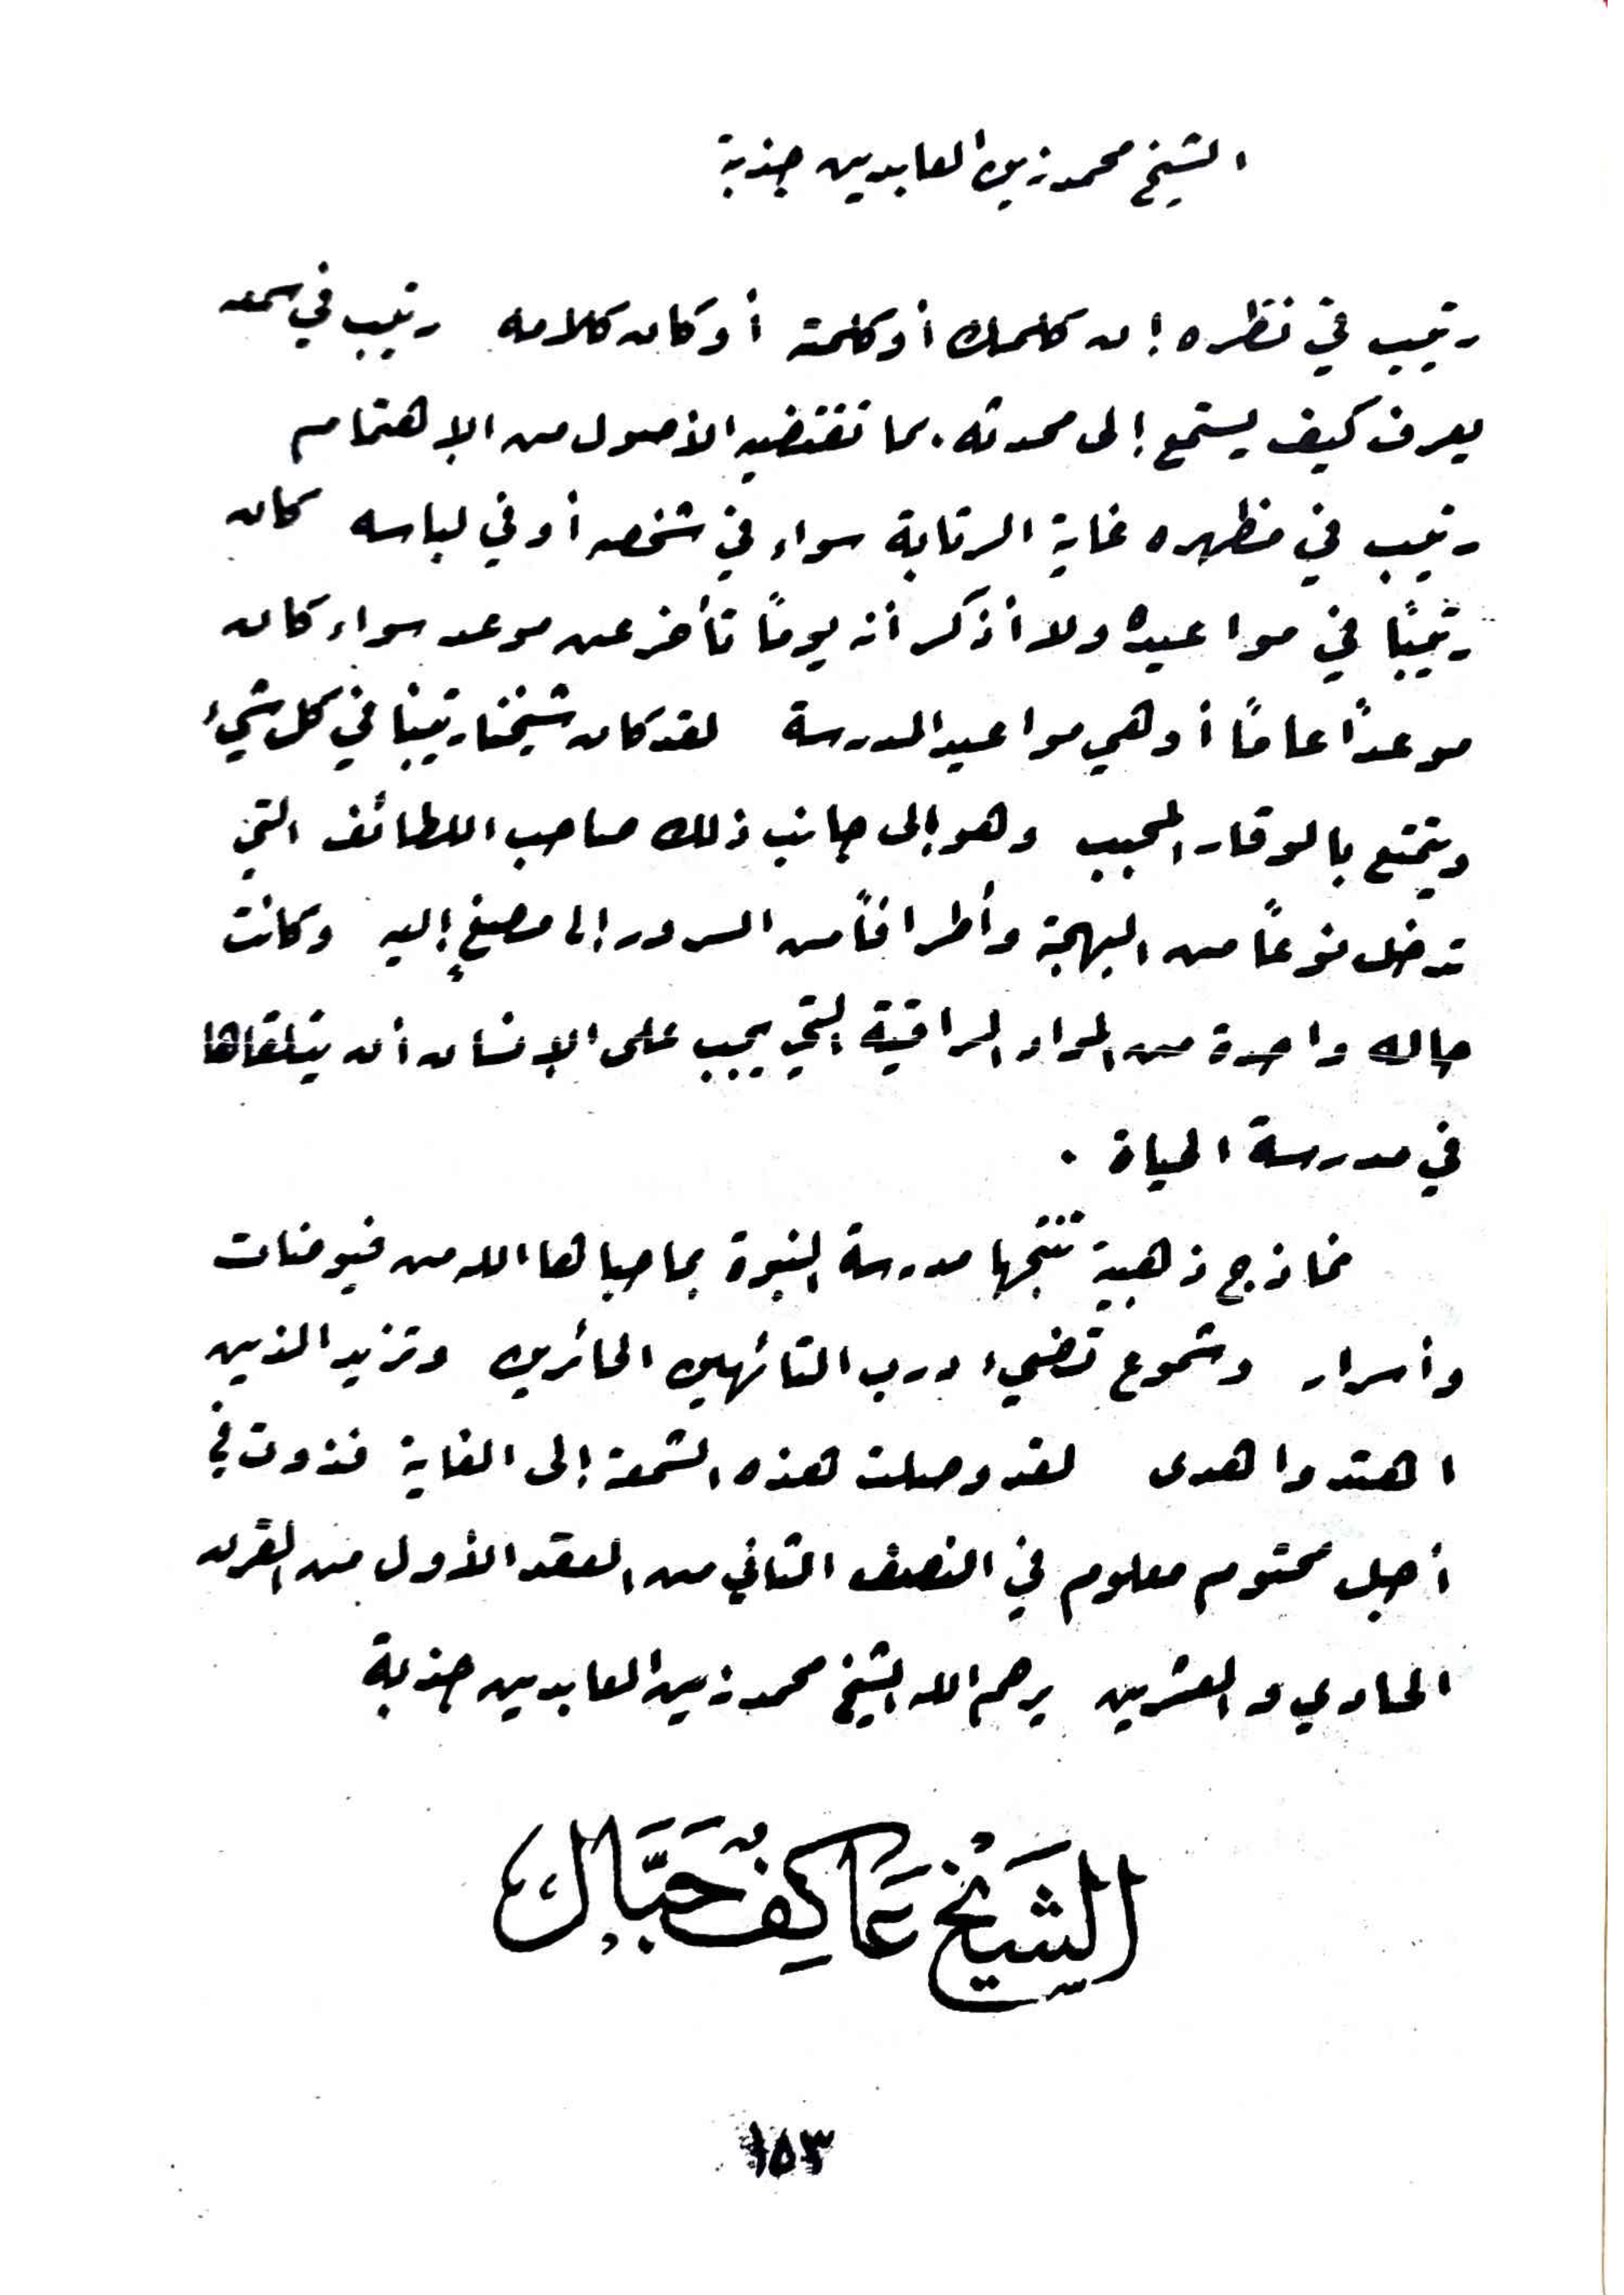 الشيخ محمد زين العابدين جذبة
رتيب في نظره إن كلمك أو كلمته أو كان كلامه رتيب في سمعه
يعرف كيف يستمع إلى محدثه بما تقتضيه الأصول من الإهتمام
رتيب في مظهره غاية الرتابة سواء في شخصه أو في لباسه كان
رتيبًا في مواعيده ولا أذكر أنه يومًا تأخر عن موعد سواء كان
موعدًا عامًا أو هي مواعيد المدرسة لقد كان شيخنا رتيبًا في كل شيء
ويتمتع بالوقار المحبب وهو إلى جانب ذلك صاحب اللطائف التي
تدخل نوعًا من البهجة وأطرافًا من السرور إلى مصغٍ إليه وكانت
حاله واحدة من المواد الراقية التي يجب على الإنسان أن يتلقاها
في مدرسة الحياة .
نماذج ذهبية تنتجها مدرسة النبوة بما حباها الله من فيوضات
وأسرار وشموع تضيء درب التائهين الحائرين وتزيد الذين
اهتدوا هدى لقد وصلت هذه الشمعة إلى الغاية فذوت في
أجل محتوم معلوم في النصف الثاني من العقد الأول من القرن
الحادي والعشرين يرحم الله الشيخ محمد زين العابدين جذبة
الشَيْخ عَاكِفْ حَبَّال
١٥٣